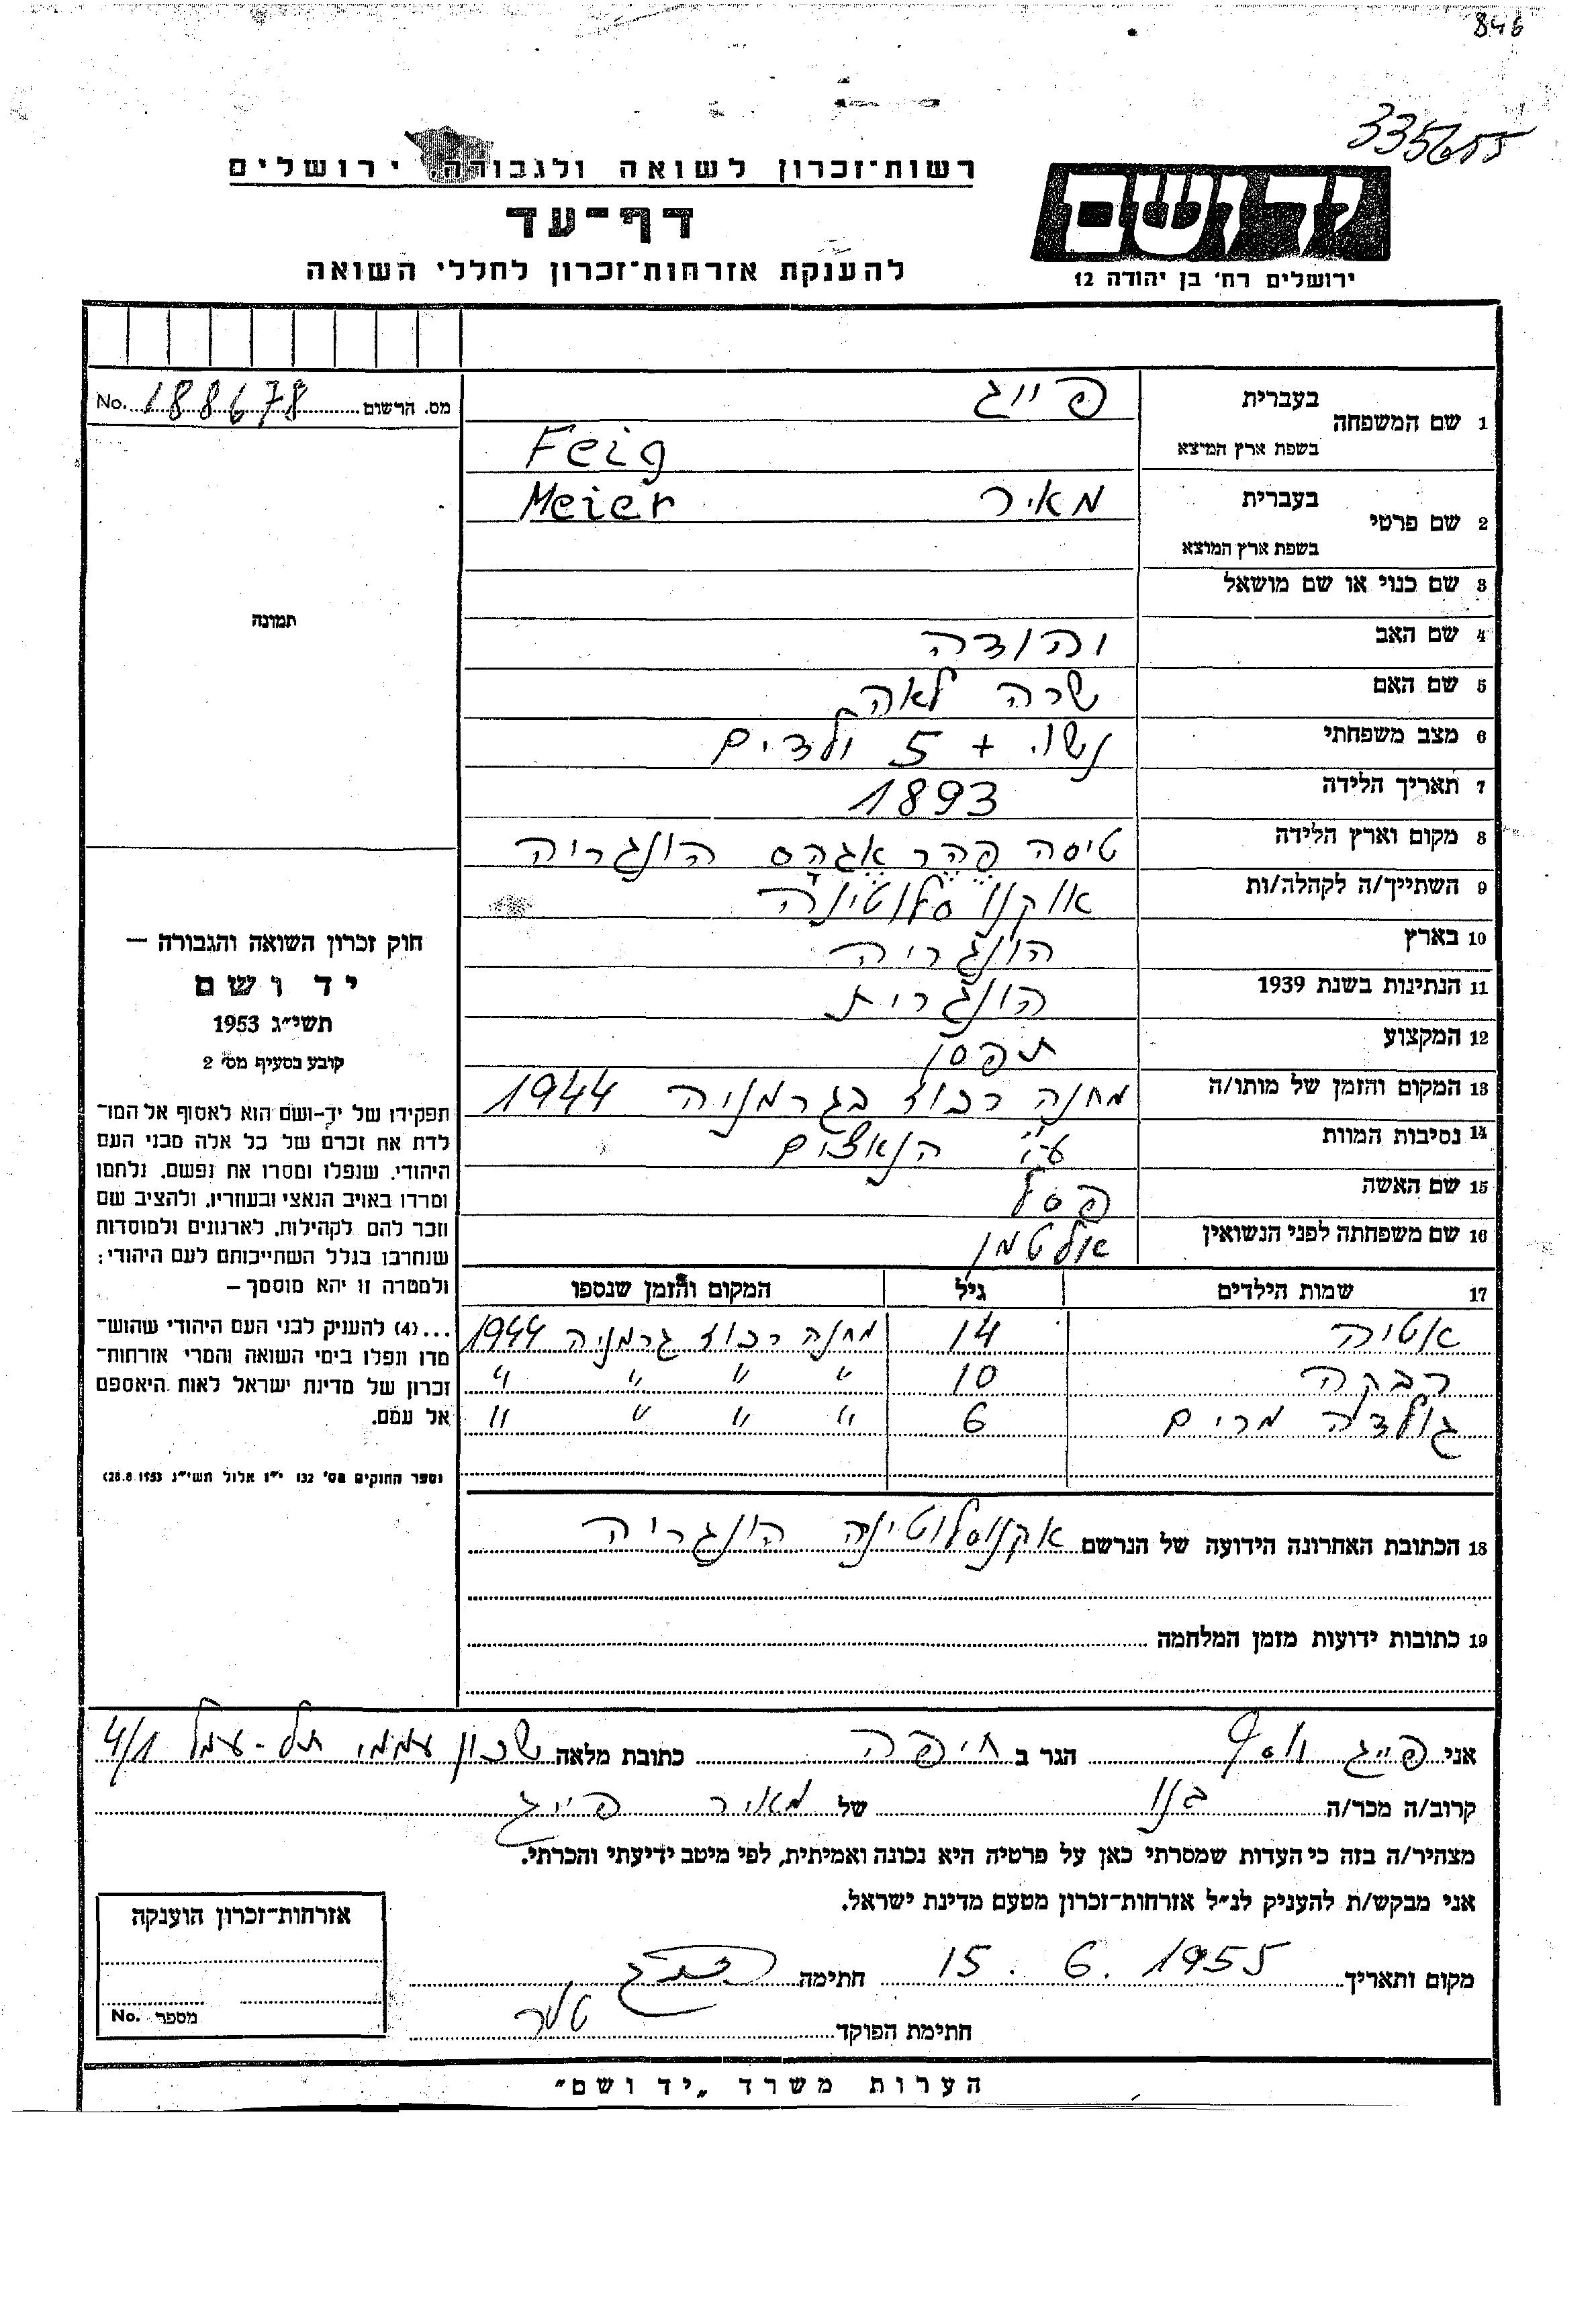 846
335655
רשות־זכרון לשואה ולגבורה, ירושלים
דף־עד
להענקת אזרחות־זכרון לחללי השואה
יד ושם
ירושלים רח' בן יהודה 12
מס. הרשום 188678 No.
תמונה
חוק זכרון השואה והגבורה —
יד ושם
תשי״ג 1953
קובע בסעיף מס' 2
תפקידו של יד-ושם הוא לאסוף אל המו־
לדת את זכרם של כל אלה מבני העם
היהודי, שנפלו ומסרו את נפשם, נלחמו
ומרדו באויב הנאצי ובעוזריו, ולהציב שם
וזכר להם לקהילות, לארגונים ולמוסדות
שנחרבו בגלל השתייכותם לעם היהודי;
ולמטרה זו יהא מוסמך —
...(4) להעניק לבני העם היהודי שהוש־
מדו ונפלו בימי השואה והמרי אזרחות־
זכרון של מדינת ישראל לאות היאספם
אל עמם.
(ספר החוקים מס' 132 י״ז אלול תשי״ג 28.8.1953)
1 שם המשפחה בעברית פייג
בשפת ארץ המוצא Feig
2 שם פרטי בעברית מאיר Meier
בשפת ארץ המוצא
3 שם כנוי או שם מושאל
4 שם האב יהודה
5 שם האם שרה לאה
6 מצב משפחתי נשוי + 5 ילדים
7 תאריך הלידה 1893
8 מקום וארץ הלידה טיסה פהר אגהס הונגריה
9 השתייך/ה לקהלה/ות אוקנו סלוטינה
10 בארץ הונגריה
11 הנתינות בשנת 1939 הונגרית
12 המקצוע
13 המקום והזמן של מותו/ה מחנה רכוז בגרמניה 1944
14 נסיבות המוות ע״י הנאצים
15 שם האשה פסל
16 שם משפחתה לפני הנשואין אלטמן
17 שמות הילדים גיל המקום והזמן שנספו
אטיה 14 מחנה רכוז גרמניה 1944
רבקה 10 " " " "
גולדה מרים 6 " " " "
18 הכתובת האחרונה הידועה של הנרשם אקנוסלוטינה הונגריה
19 כתובות ידועות מזמן המלחמה
אני פייג יוסף הגר ב חיפה כתובת מלאה שכון עממי תל-עמל 4/1
קרוב/ה מכר/ה בנו של מאיר פייג
מצהיר/ה בזה כי העדות שמסרתי כאן על פרטיה היא נכונה ואמיתית, לפי מיטב ידיעתי והכרתי.
אני מבקש/ת להעניק לנ״ל אזרחות־זכרון מטעם מדינת ישראל.
מקום ותאריך 15. 6. 1955 חתימה
חתימת הפוקד
אזרחות־זכרון הוענקה
מספר No.
הערות משרד „יד ושם״